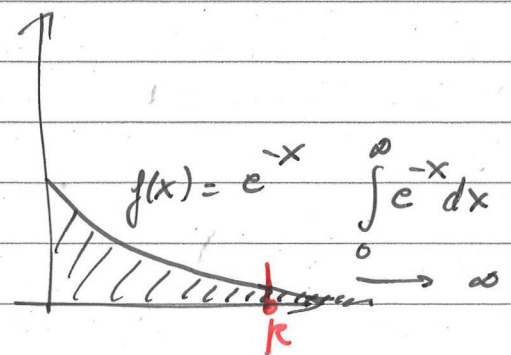 f(x) = e^{-x}
∫_0^∞ e^{-x} dx
→ ∞
k